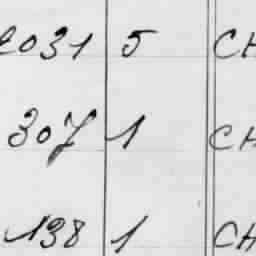 2031 5 CH
307 1 CH
138 1 CH